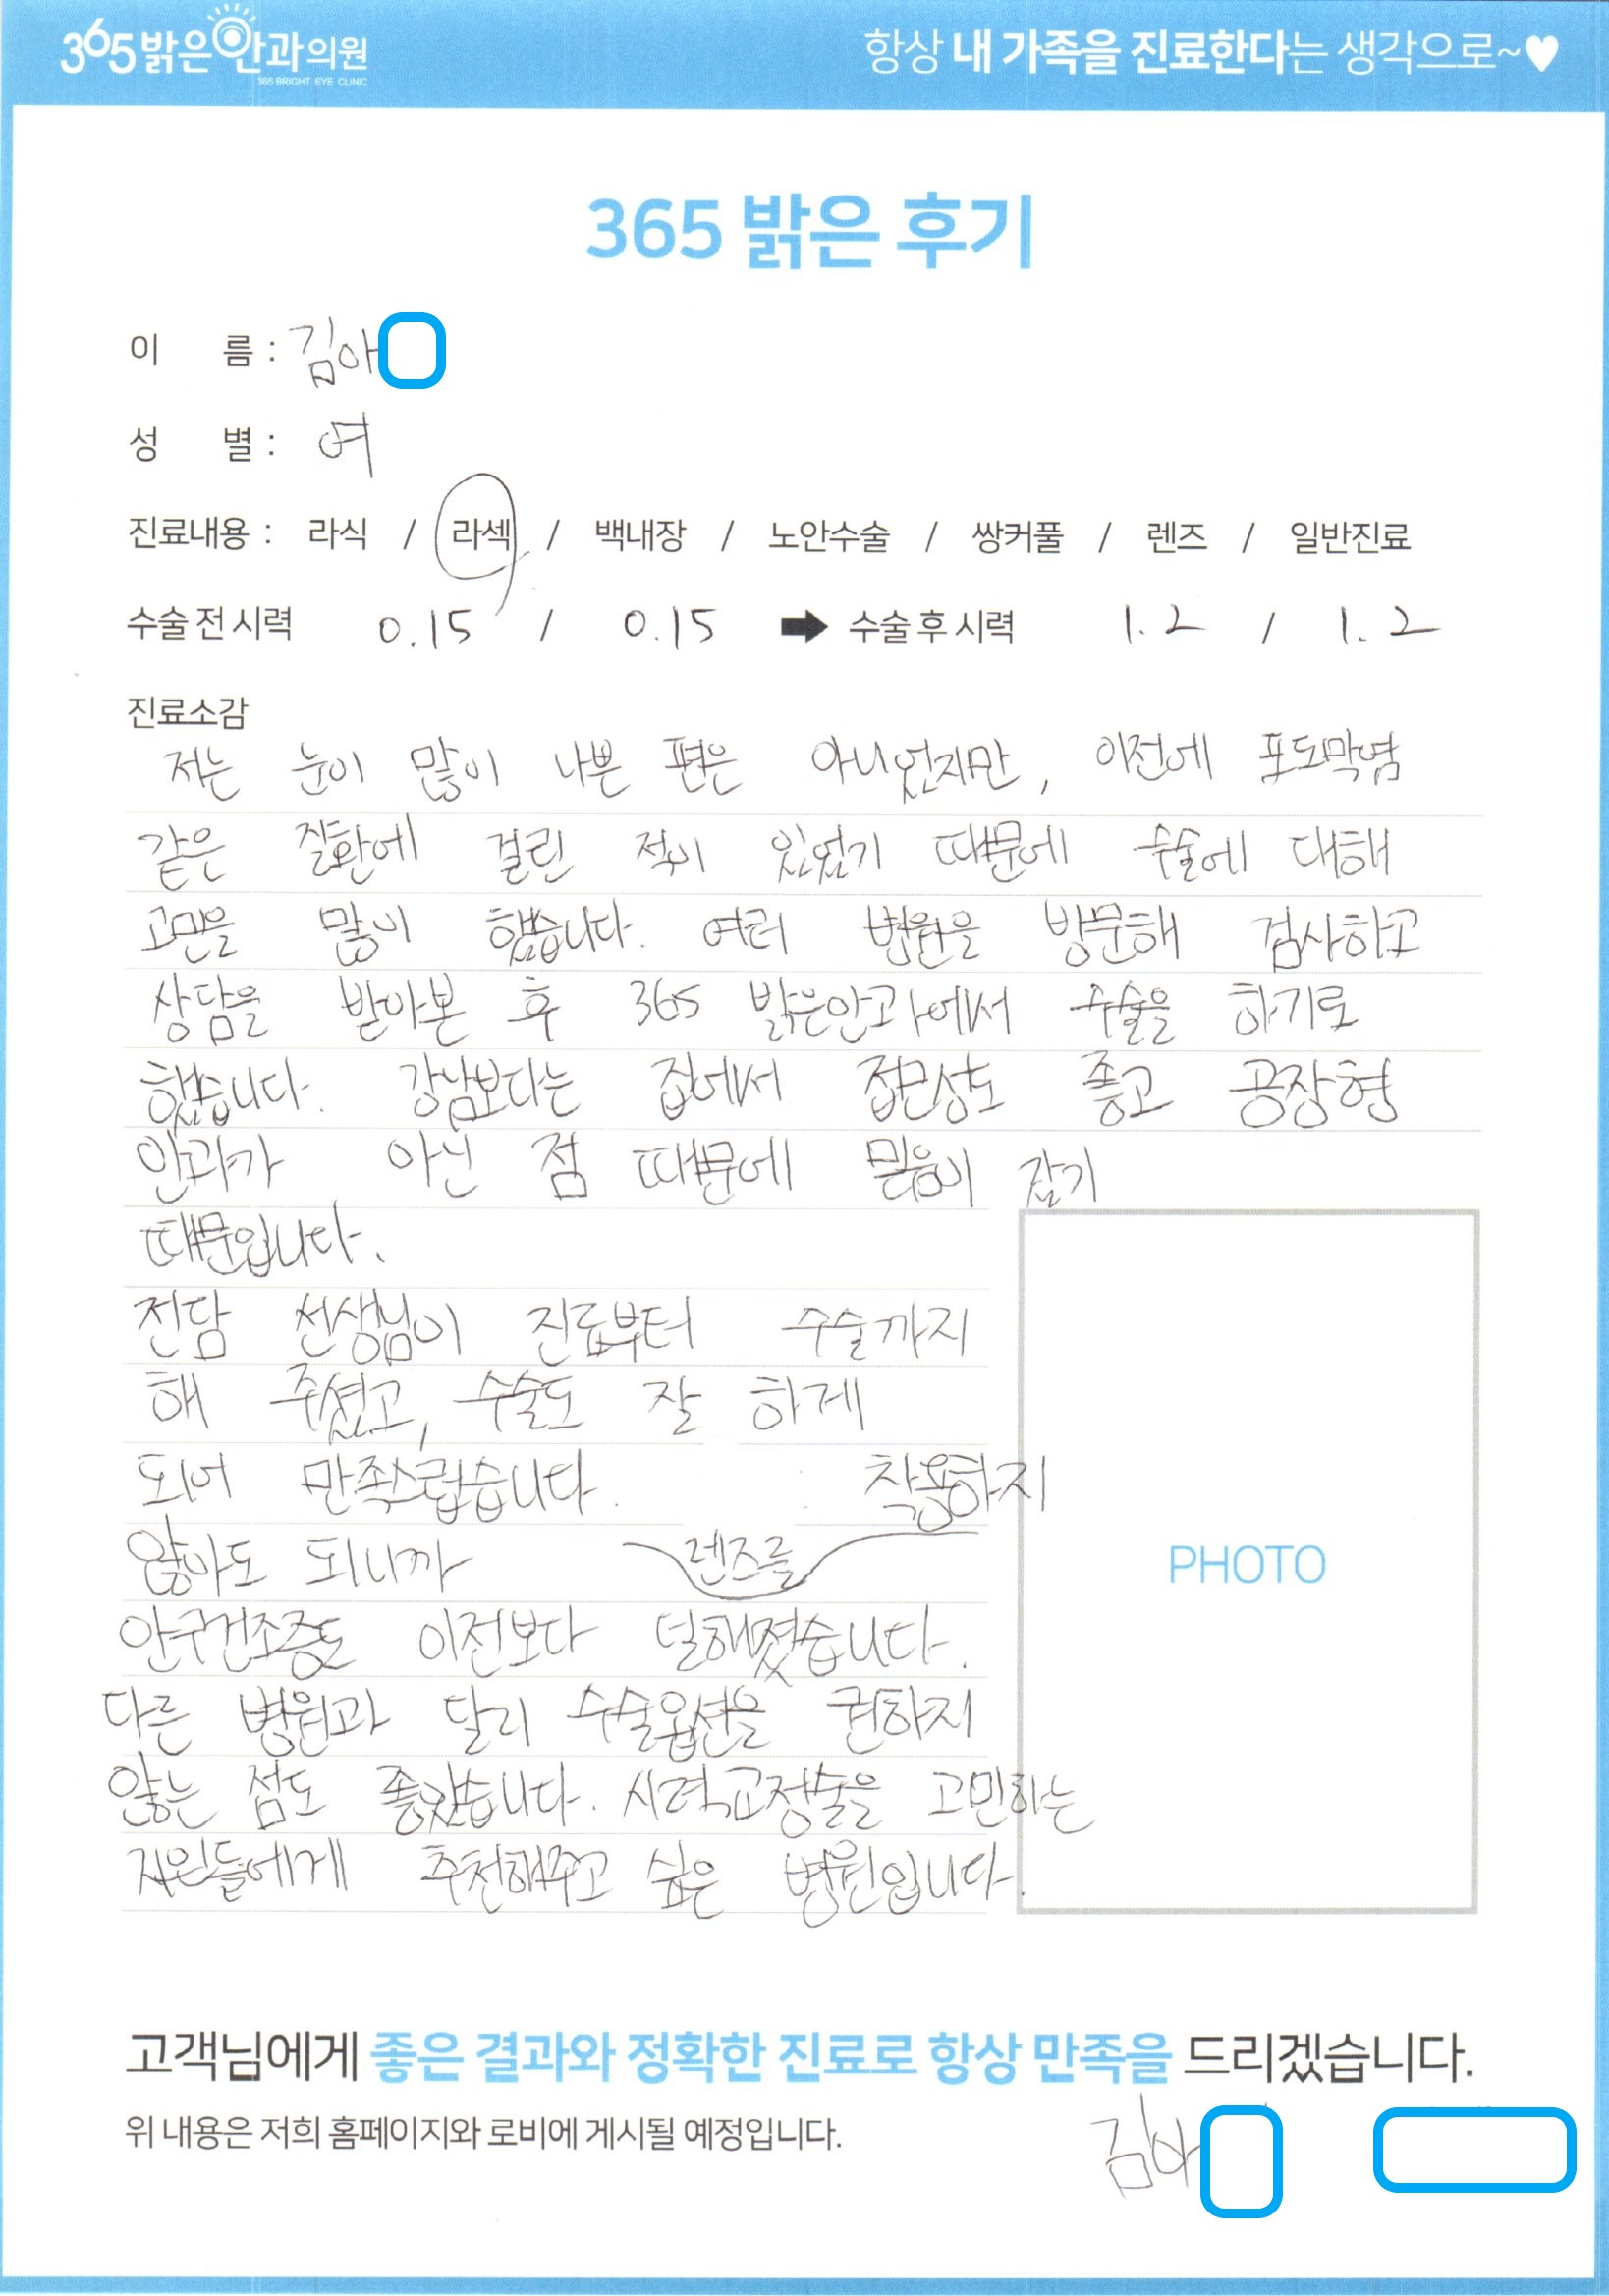 365밝은안과의원
365 BRIGHT EYE CLINIC
항상 내 가족을 진료한다는 생각으로~♥
365 밝은 후기
이 름 : 김아
성 별 : 여
진료내용 : 라식 / 라섹 / 백내장 / 노안수술 / 쌍커풀 / 렌즈 / 일반진료
수술 전 시력 0.15 / 0.15 ➡ 수술 후 시력 1.2 / 1.2
진료소감
저는 눈이 많이 나쁜 편은 아니었지만, 이전에 포도막염
같은 질환에 걸린 적이 있었기 때문에 수술에 대해
고민을 많이 했습니다. 여러 병원을 방문해 검사하고
상담을 받아본 후 365 밝은안과에서 수술을 하기로
했습니다. 강남보다는 집에서 접근성도 좋고 공장형
안과가 아닌 점 때문에 믿음이 갔기
때문입니다.
전담 선생님이 진료부터 수술까지
해 주셨고, 수술도 잘 하게
되어 만족스럽습니다.
렌즈를 착용하지
않아도 되니까
안구건조증도 이전보다 덜해졌습니다.
다른 병원과 달리 수술옵션을 권하지
않는 점도 좋았습니다. 시력교정술을 고민하는
지인들에게 추천해주고 싶은 병원입니다.
PHOTO
고객님에게 좋은 결과와 정확한 진료로 항상 만족을 드리겠습니다.
위 내용은 저희 홈페이지와 로비에 게시될 예정입니다.
김아